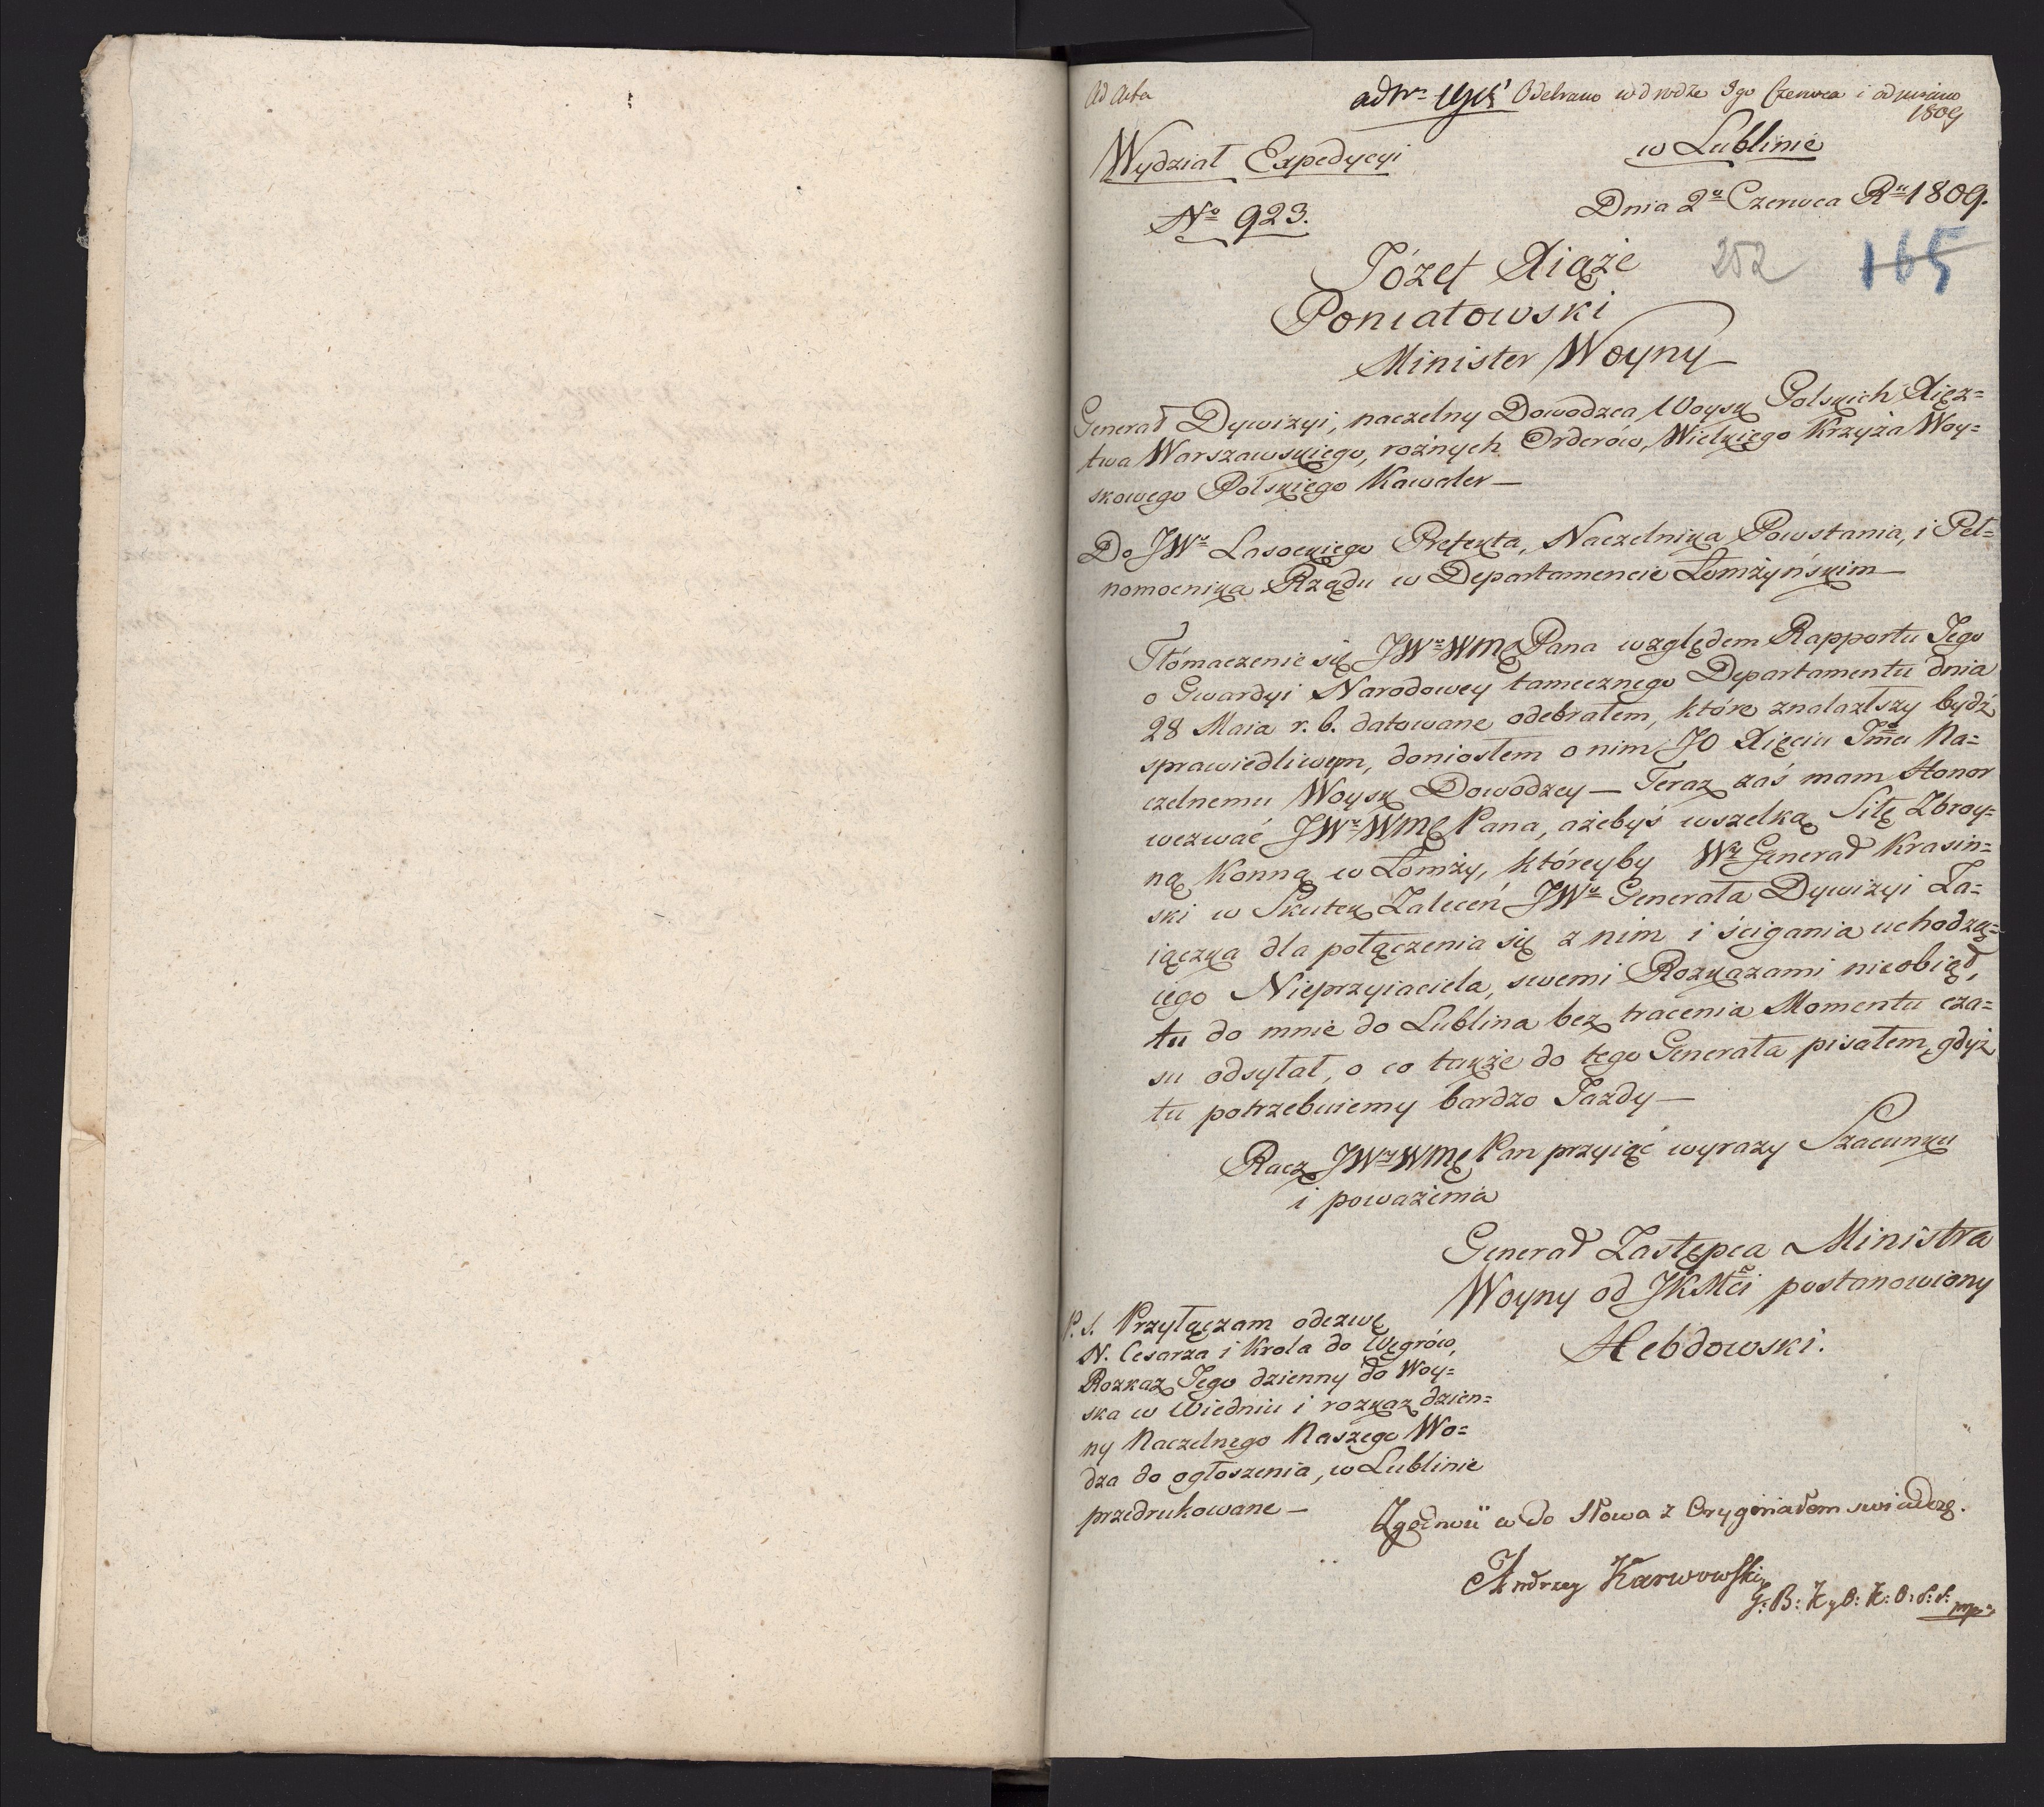 Ad Acta
ad Nr Odebrano w drodze 9go Czerwca i odpisano
1809
Wydział Expedycyi
w Lublinie
No 923.
Dnia 2o Czerwca Ru 1809.
252 165
Józef Xiąże
Poniatowski
Minister Woyny
Generał Dywizyi, naczelny Dowodzca Woysk Polskich Xięz=
twa Warszawskiego, rożnych Orderów, Wielkiego Krzyża Woy=
skowego Polskiego Kawaler—
Do JWo Lasockiego Prefekta, Naczelnika Powstania, i Peł=
nomocnika Rządu w Departamencie Łomżyńskim—
Tłómaczenie się JWo WMę Pana względem Rapportu Jego
o Gwardyi Narodowey tamecznego Departamentu dnia
28 Maia r. b. datowane odebrałem, które znalazłszy bydź
sprawiedliwym, doniosłem o nim JO Xięciu Jmci Na=
czelnemu Woysk Dowodzcy— Teraz zaś mam Honor
wezwać JWo WMę Pana, ażebyś wszelką Siłę Zbroy=
ną Konną w Łomży, któreyby Wy Generał Krasiń=
ski w Skutek Zaleceń JWo Generała Dywizyi Za=
iączka dla połączenia się z nim i ścigania uchodzą=
cego Nieprzyiaciela, swemi Rozkazami nieobiął,
tu do mnie do Lublina bez tracenia Momentu cza=
su odsyłał, o co także do tego Generała pisałem, gdyż
tu potrzebuiemy bardzo Jazdy—
Racz JWy WMę Pan przyiąć wyrazy Szacunku
i poważenia
Generał Zastępca Ministra
Woyny od JKMci postanowiony
Hebdowski.
P. S. Przyłączam odezwę
N. Cesarza i Krola do Węgrów,
Rozkaz Jego dzienny do Woy=
ska w Wiedniu i rozkaz dzien=
ny Naczelnego Naszego Wo=
dza do ogłoszenia, w Lublinie
przedrukowane—
Zgodność co do Słowa z Oryginałem swiadczę.
Andrzey Karwowski